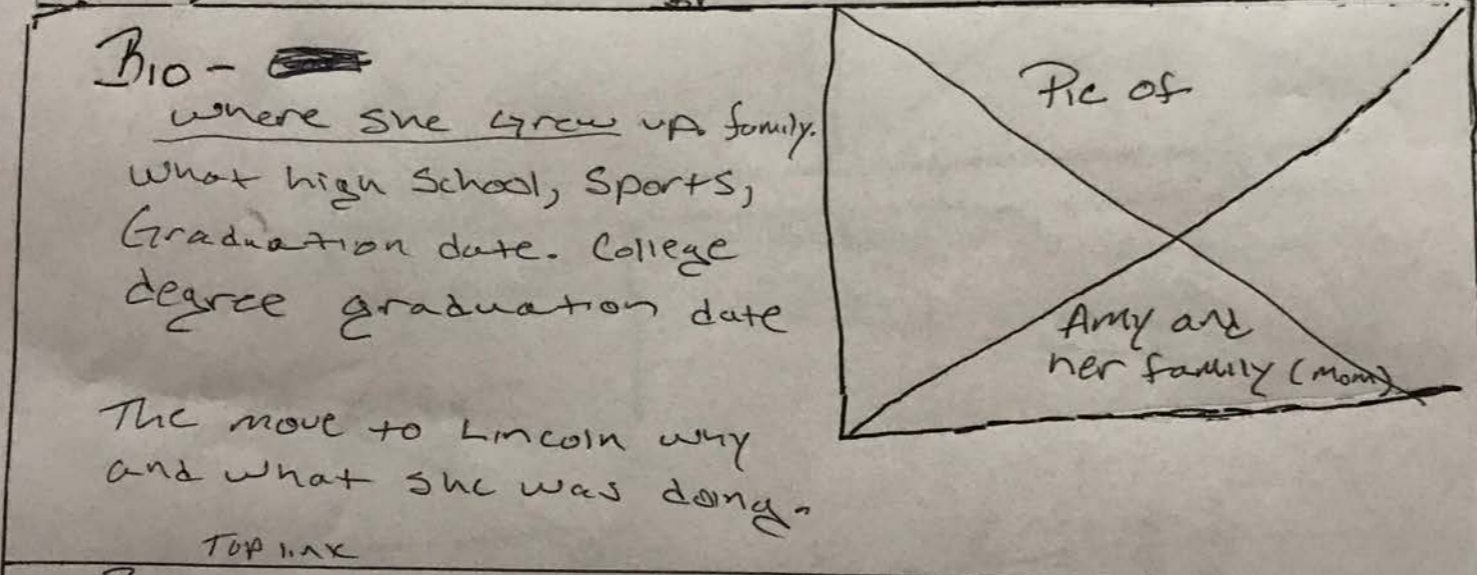 Bio -
where she Grew up. family.
What high School, Sports,
Graduation date. College
degree graduation date
The move to Lincoln why
and what she was doing.
Top link
Pic of
Amy and
her family (mom)